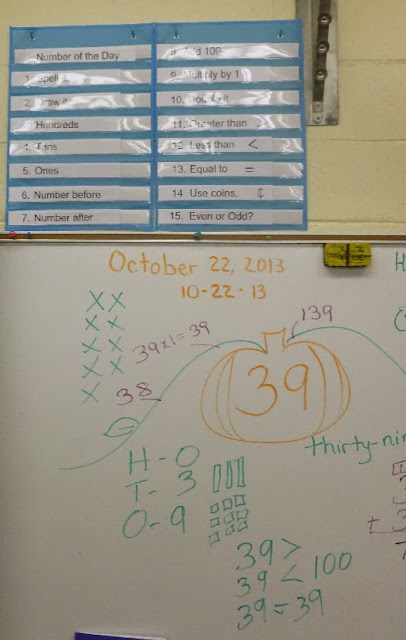 Number of the Day
1. Spell it
2. Draw it
3. Hundreds
4. Tens
5. Ones
6. Number before
7. Number after
8. Add 100
9. Multiply by 1
10. Double it
11. Greater than >
12. Less than <
13. Equal to =
14 Use coins. ¢
15. Even or Odd?
October 22, 2013
10-22-13
XX
XX
XX
XX
X
39x1=39
139
38
39
thirty-nin
H-0
T-3
O-9
39 >
39 < 100
39 = 39
H
3
+ 3
7